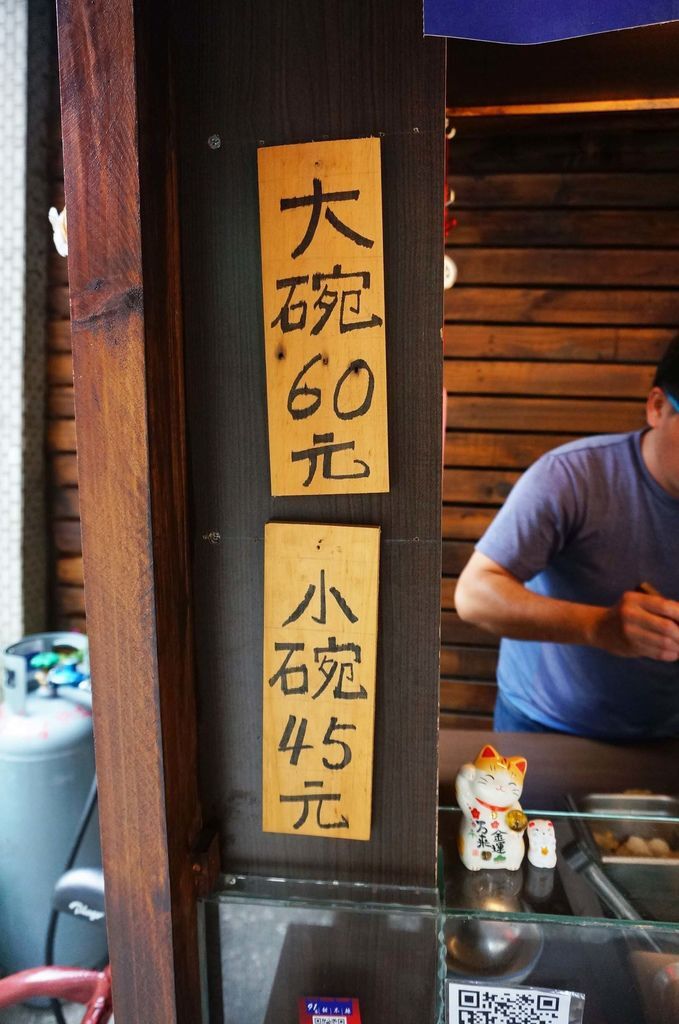 大
碗
60
元
小
碗
45
元
金運
万来